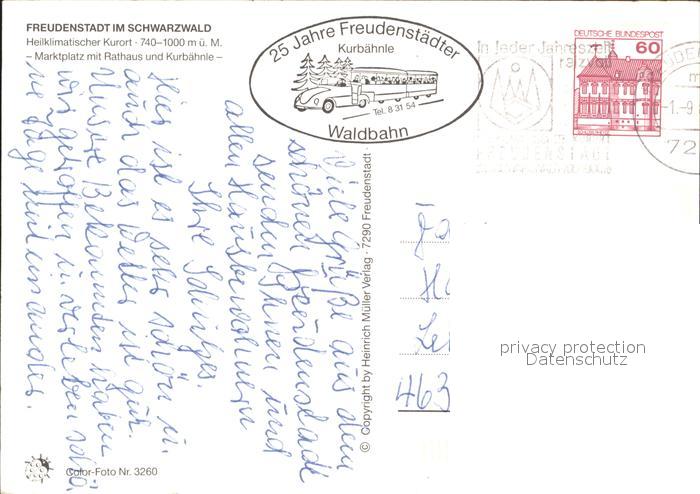 FREUDENSTADT IM SCHWARZWALD
Heilklimatischer Kurort · 740–1000 m ü. M.
– Marktplatz mit Rathaus und Kurbähnle –
25 Jahre Freudenstädter
Kurbähnle
Tel. 8 31 54
Waldbahn
In jeder Jahreszeit
FREUDENSTADT
DEUTSCHE BUNDESPOST
60
-1.-9
72
Viele Grüße aus dem
schönen Freudenstadt
senden Ihnen und
allen Hausbewohnern
Ihre
Hier ist es sehr schön u.
auch das Wetter ist gut.
Unsere Bekannten haben
wir getroffen u. verleben schö
ne Tage miteinander.
© Copyright by Heinrich Müller Verlag · 7290 Freudenstadt ·
463
privacy protection
Datenschutz
Color-Foto Nr. 3260